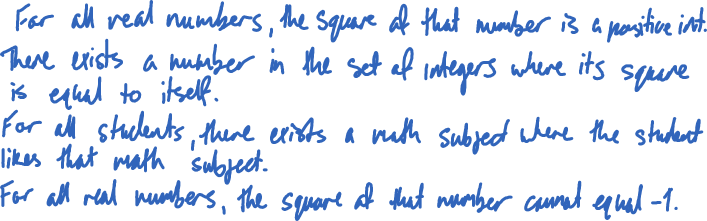 For all real numbers, the square of that number is a positive int.
There exists a number in the set of integers where its square
is equal to itself.
For all students, there exists a math subject where the student
likes that math subject.
For all real numbers, the square of that number cannot equal -1.